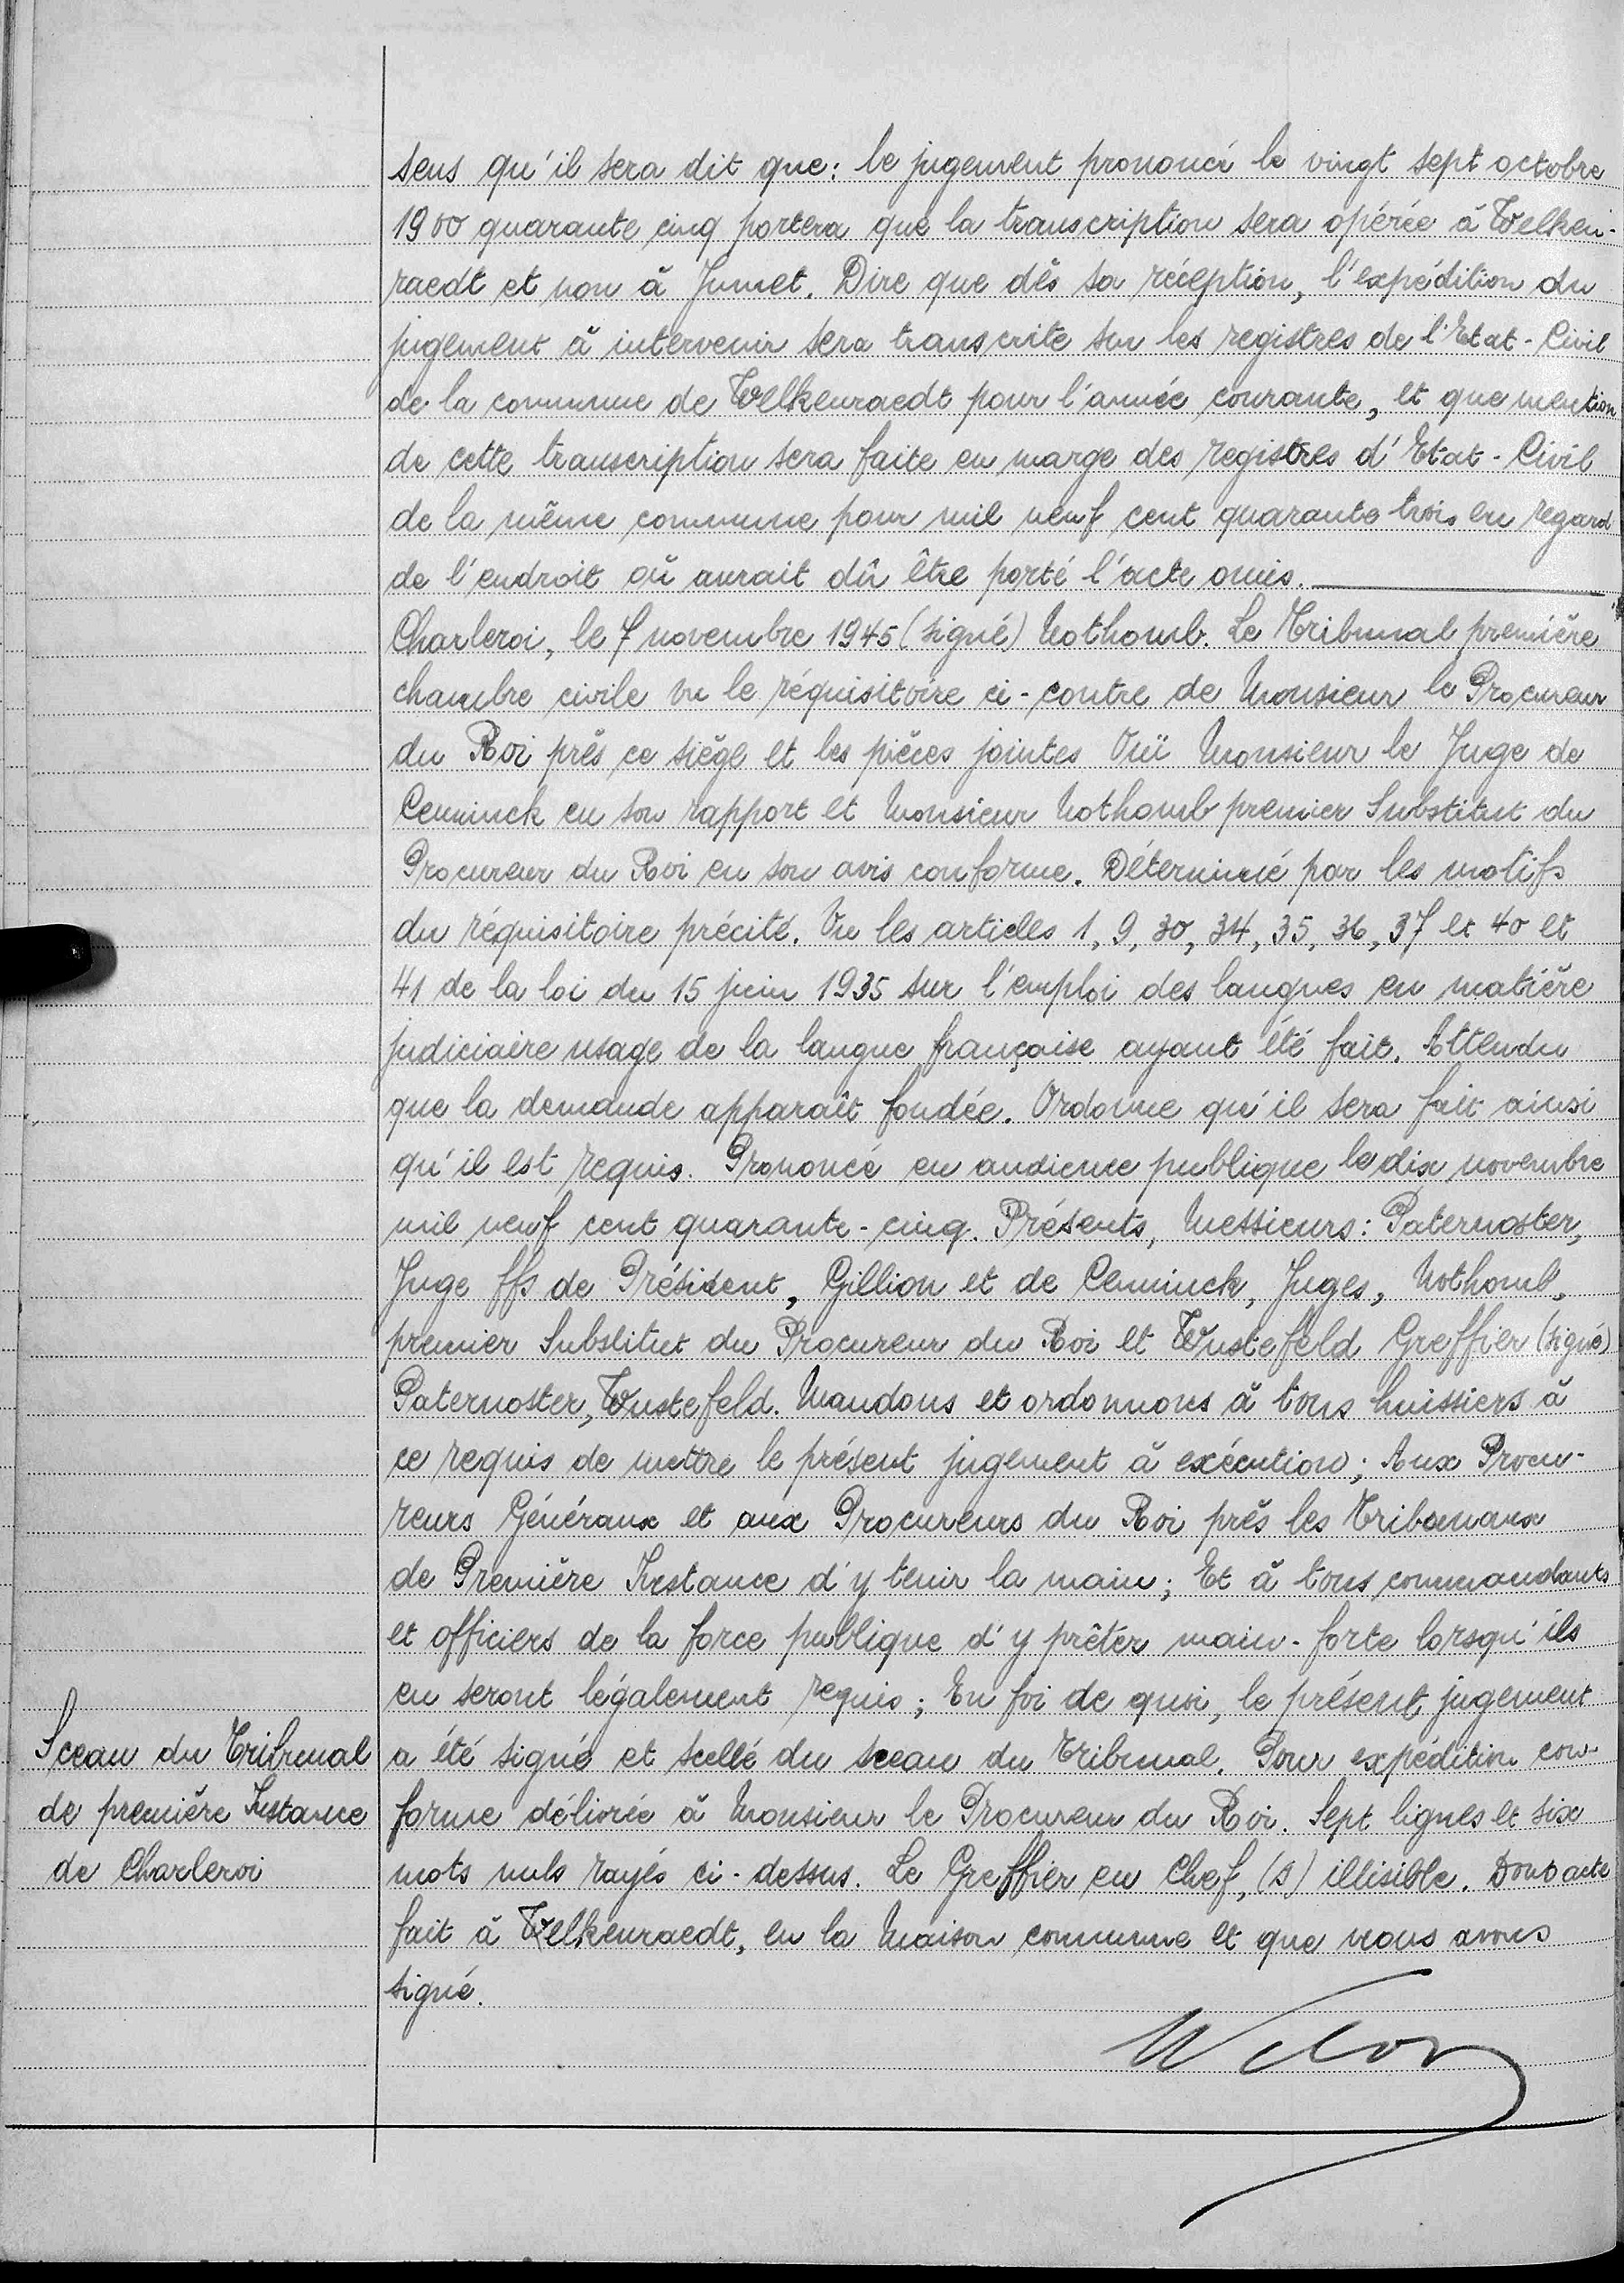 sens qu'il sera dit que: le jugement prononcé le vingt sept octobre
1900 quarante cinq portera que la transcription sera opérée à Welken-
raedt et non à Jumet. Dire que dès sa réception, l'expédition du
jugement à intervenir sera transcrite sur les registres de l'Etat-Civil
de la commune de Welkenraedt pour l'année courante, et que mention
de cette transcription sera faite en marge des registres d'Etat-Civil
de la même commune pour mil neuf cent quarante trois en regard
de l'endroit où aurait dû être porté l'acte omis.
Charleroi, le 7 novembre 1945 (signé) Nothomb. Le Tribunal première
chambre civile vu le réquisitoire ci-contre de Monsieur le Procureur
du Roi près ce siège et les pièces jointes Ouï Monsieur le Juge de
Ceuninck en son rapport et Monsieur Nothomb premier Substitut du
Procureur du Roi en son avis conforme. Déterminé par les motifs
du réquisitoire précité. Vu les articles 1, 9, 30, 34, 35, 36, 37 et 40 et
41 de la loi du 15 juin 1935 sur l'emploi des langues en matière
judiciaire usage de la langue française ayant été fait. Attendu
que la demande apparaît fondée. Ordonne qu'il sera fait ainsi
qu'il est requis. Prononcé en audience publique le dix novembre
mil neuf cent quarante-cinq. Présents, Messieurs: Paternoster,
Juge ffs de Président, Gillion et de Ceuninck, Juges, Nothomb,
premier Substitut du Procureur du Roi et Wustefeld Greffier (signé)
Paternoster, Wustefeld. Mandons et ordonnons à tous huissiers à
ce requis de mettre le présent jugement à exécution; Aux Procu-
reurs Généraux et aux Procureurs du Roi près les Tribunaux
de Première Instance d'y tenir la main; Et à tous commandants
et officiers de la force publique d'y prêter main-forte lorsqu'ils
en seront légalement requis; En foi de quoi, le présent jugement
a été signé et scellé du sceau du Tribunal. Pour expédition con-
forme délivrée à Monsieur le Procureur du Roi. Sept lignes et six
mots nuls rayés ci-dessus. Le Greffier en Chef, (s) illisible. Dont acte
fait à Welkenraedt, en la Maison commune et que nous avons
signé.
Sceau du Tribunal
de première Instance
de Charleroi